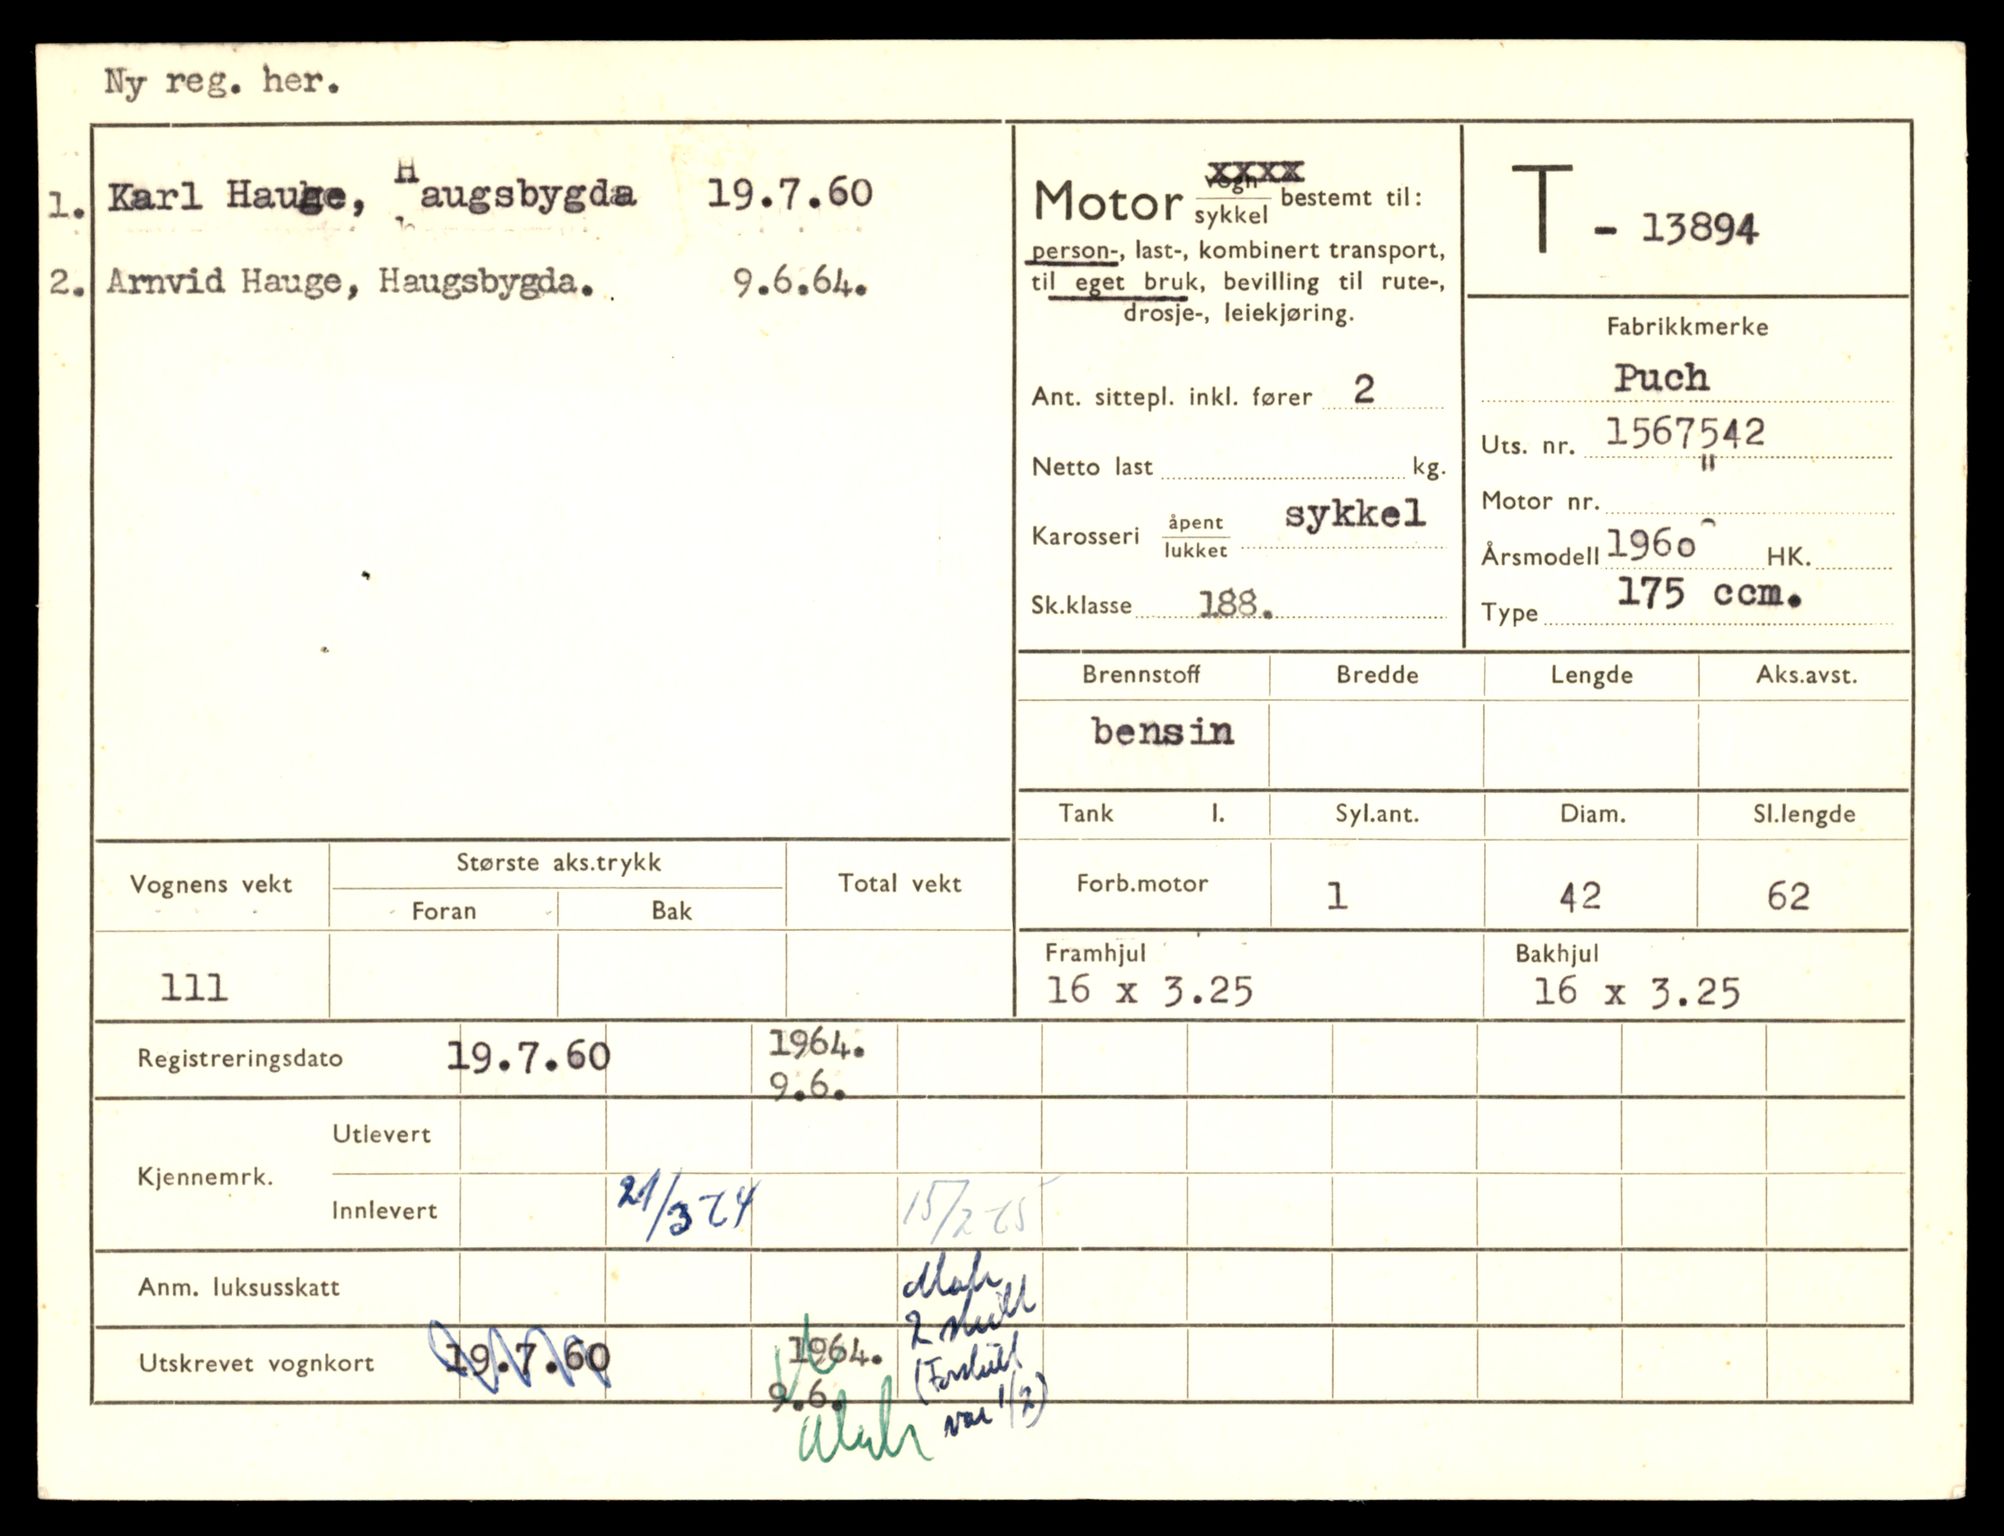 Ny reg. her.
1. Karl Hauge, Haugsbygda 19.7.60
2. Arnvid Hauge, Haugsbygda. 9.6.64.
Motor vogn xxxx
sykkel bestemt til:
person-, last-, kombinert transport,
til eget bruk, bevilling til rute-,
drosje-, leiekjøring.
Ant. sittepl. inkl. fører 2
Netto last kg.
Karosseri åpent
lukket sykkel
Sk.klasse 188.
T - 13894
Fabrikkmerke
Puch
Uts. nr. 1567542
"
Motor nr.
Årsmodell 1960 HK.
Type 175 ccm.
Brennstoff Bredde Lengde Aks.avst.
bensin
Tank l. Syl.ant. Diam. Sl.lengde
Forb.motor 1 42 62
Framhjul Bakhjul
16 x 3.25 16 x 3.25
Vognens vekt Største aks.trykk Total vekt
Foran Bak
111
Registreringsdato 19.7.60 1964.
9.6.
Kjennemrk. Utlevert
Innlevert 21/3 74 15/2 75
Anm. luksusskatt
2 skilt
Utskrevet vognkort 19.7.60 1964.
9.6.
var 1/2)